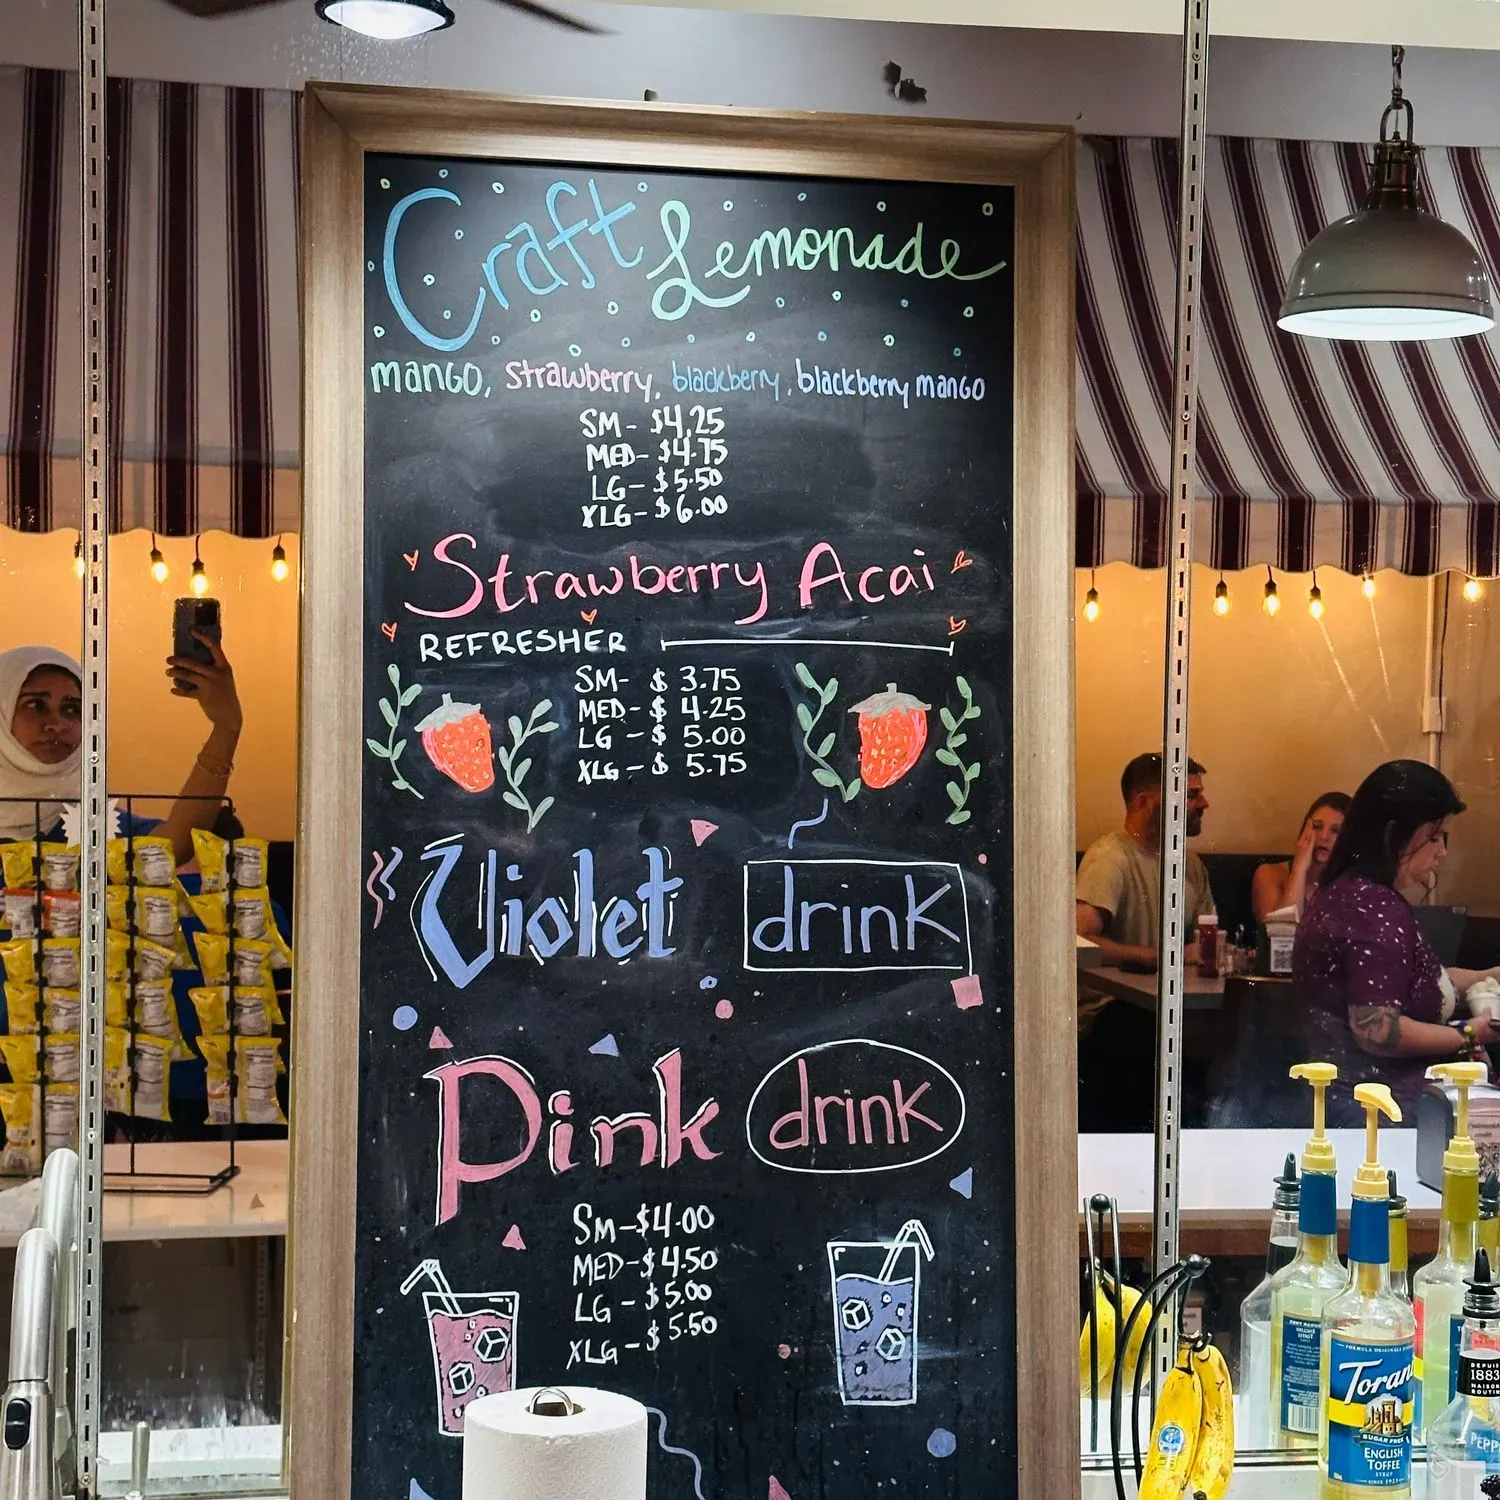 Craft Lemonade
mango, strawberry, blackberry, blackberry mango
SM- $4.25
MED- $4.75
LG- $5.50
XLG- $6.00
Strawberry Acai
REFRESHER
SM- $ 3.75
MED- $ 4.25
LG - $ 5.00
XLG - $ 5.75
Violet drink
Pink drink
SM-$4.00
MED-$4.50
LG - $5.00
XLG- $5.50
Torani
SUGAR FREE
ENGLISH
TOFFEE
SYRUP
DEPUIS
1883
MAISON